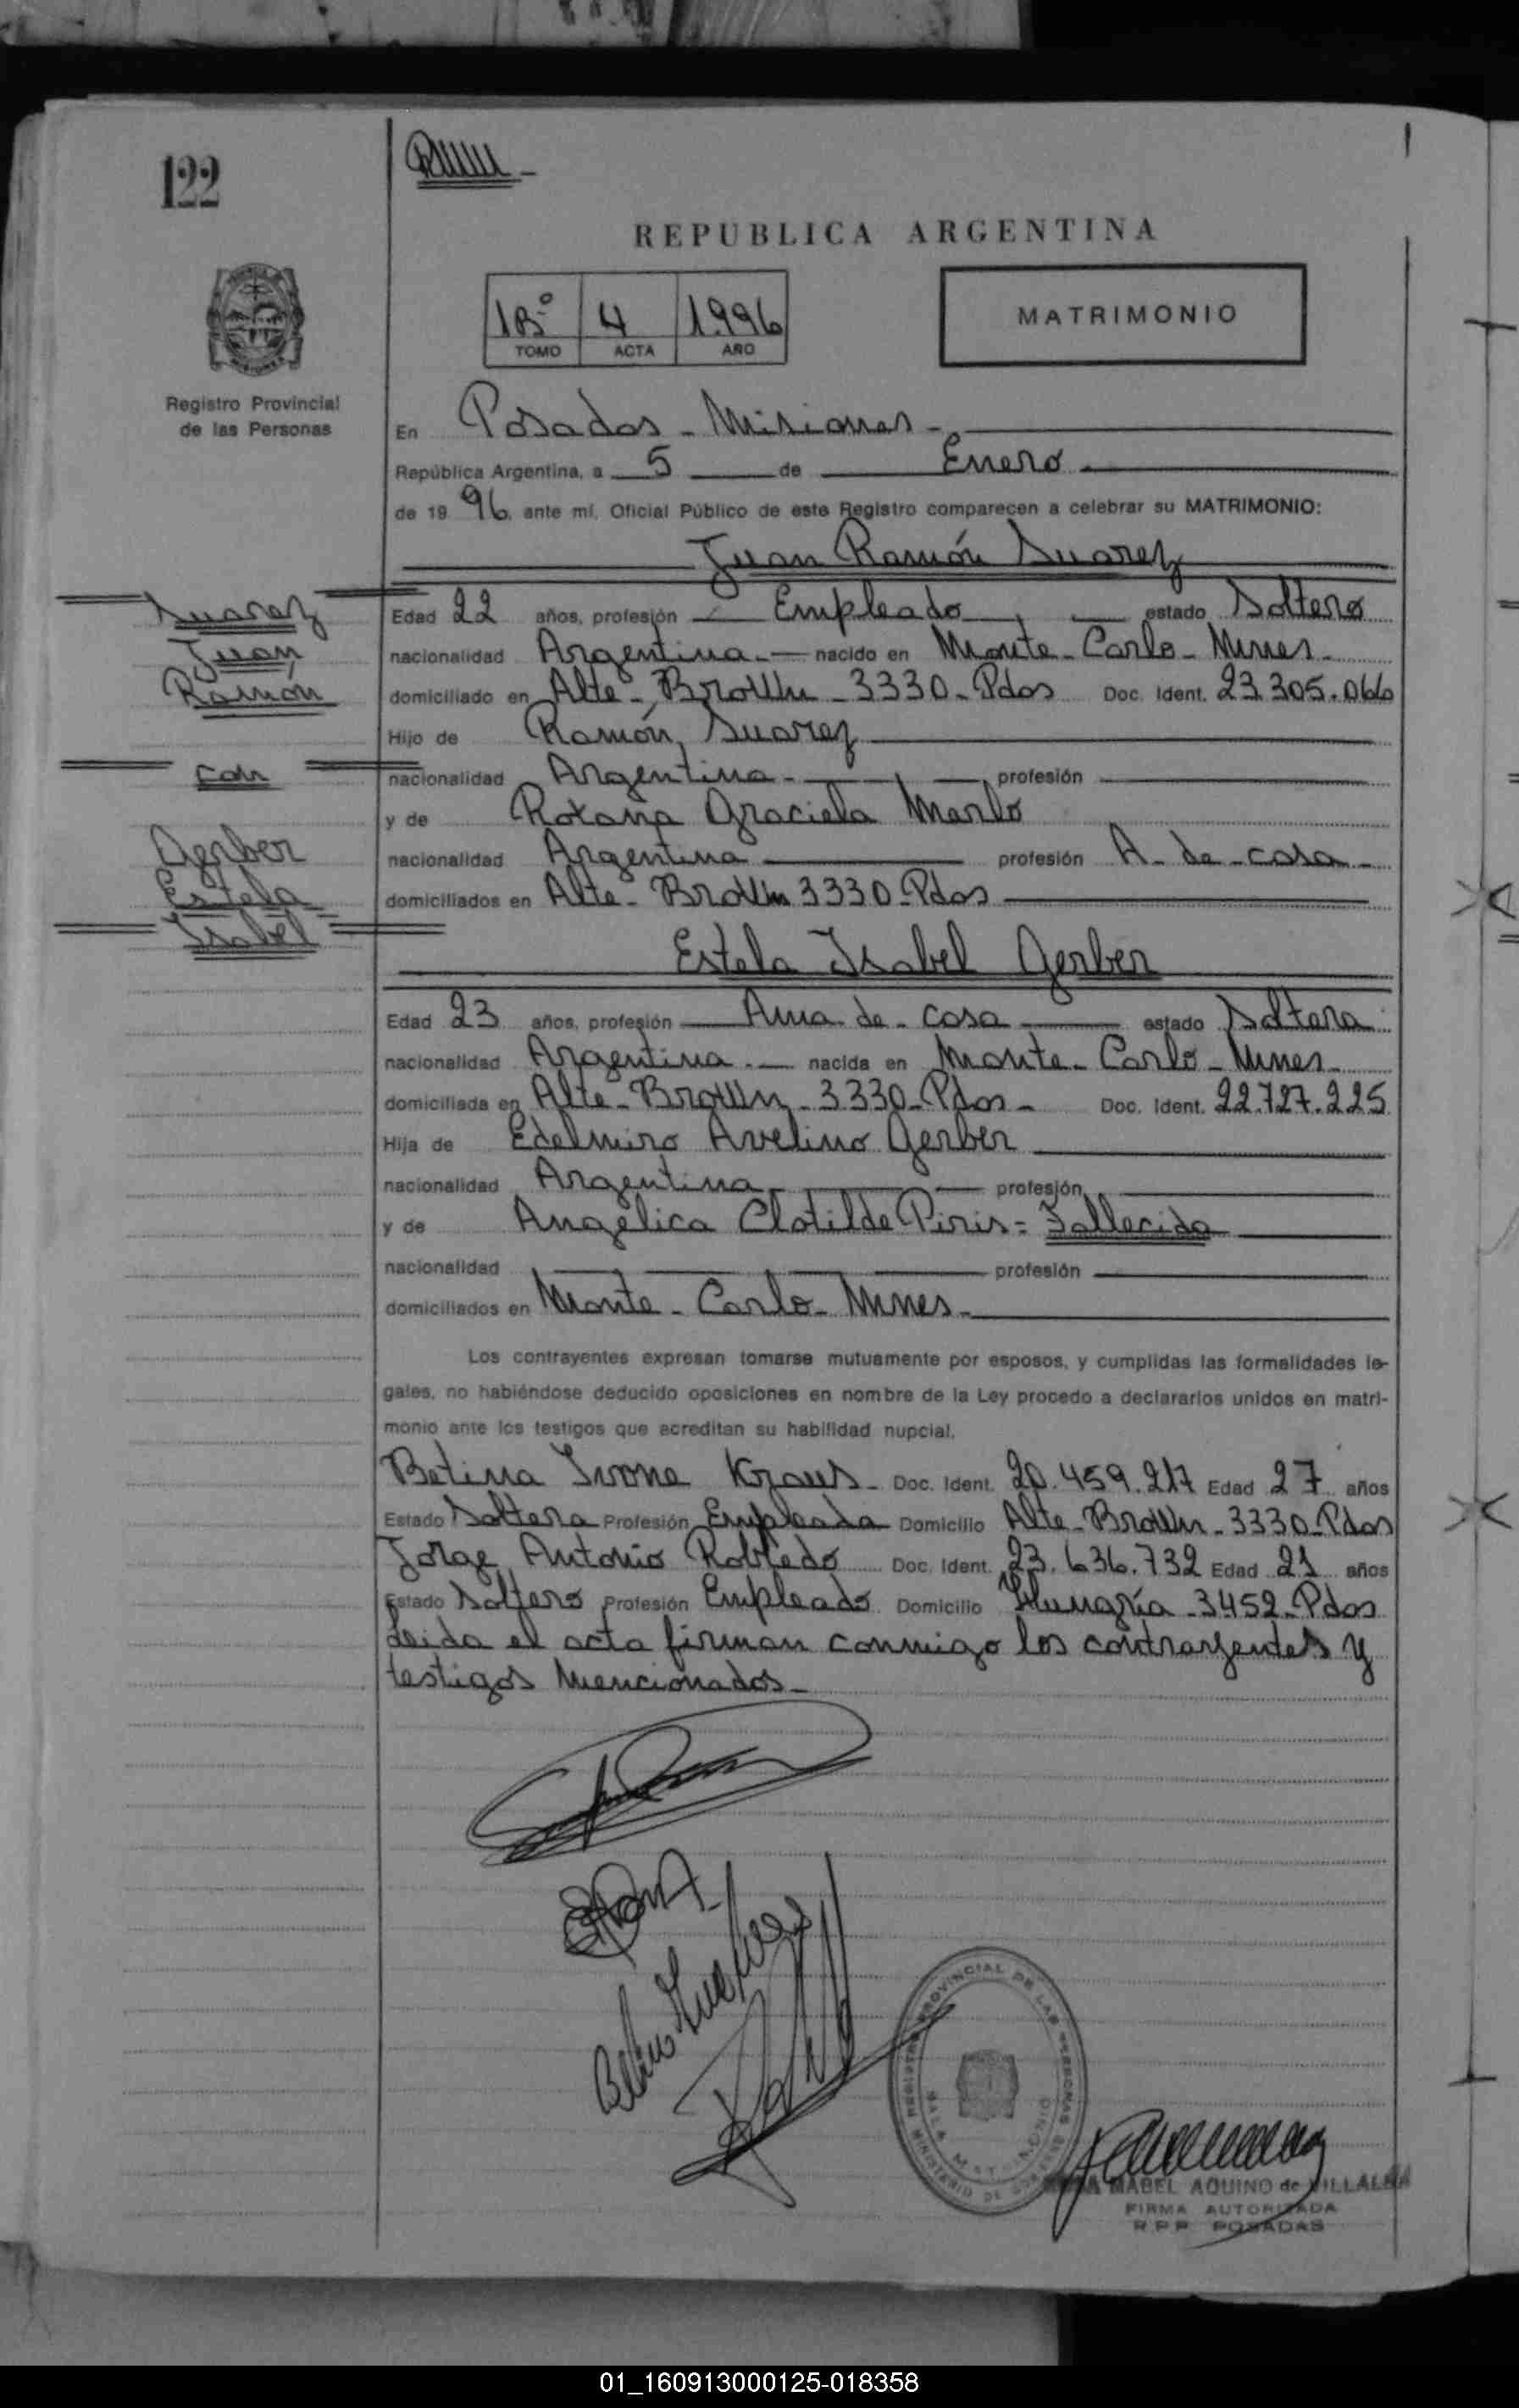 122
REPUBLICA ARGENTINA
1B° 4 1996
TOMO ACTA AÑO
MATRIMONIO
Registro Provincial
de las Personas
En Posadas - Misiones -
República Argentina, a 5 de Enero
de 19 96, ante mí, Oficial Público de este Registro comparecen a celebrar su MATRIMONIO:
Juan Ramón Suarez
Suarez
Juan
Ramón
con
Gerber
Estela
Isabel
Edad 22 años, profesión Empleado estado Soltero
nacionalidad Argentina - nacido en Monte - Carlo - Mnes -
domiciliado en Alte - Brown - 3330 - Pdas Doc. Ident. 23.305.066
Hijo de Ramón Suarez
nacionalidad Argentina - profesión
y de Roxana Graciela Merlo
nacionalidad Argentina profesión A - de - casa -
domiciliados en Alte - Brown 3330 - Pdas
Estela Isabel Gerber
Edad 23 años, profesión Ama - de - casa estado Soltera
nacionalidad Argentina - nacida en Monte - Carlo - Mnes -
domiciliada en Alte - Brown - 3330 - Pdas - Doc. Ident. 22.727.225
Hija de Edelmiro Avelino Gerber
nacionalidad Argentina - profesión
y de Angélica Clotilde Piris = Fallecida
nacionalidad profesión
domiciliados en Monte - Carlo - Mnes -
Los contrayentes expresan tomarse mutuamente por esposos, y cumplidas las formalidades le-
gales, no habiéndose deducido oposiciones en nombre de la Ley procedo a declararlos unidos en matri-
monio ante los testigos que acreditan su habilidad nupcial.
Betina Ivone Kraus - Doc. Ident. 20.459.217 Edad 27 años
Estado Soltera Profesión Empleada Domicilio Alte - Brown - 3330 - Pdas
Jorge Antonio Robledo Doc. Ident. 23.636.732 Edad 21 años
Estado Soltero Profesión Empleado Domicilio Hungría - 3452 - Pdas
Leida el acta firman conmigo los contrayentes y
testigos mencionados -
MABEL AQUINO de VILLALBA
FIRMA AUTORIZADA
R P P POSADAS
01_160913000125-018358